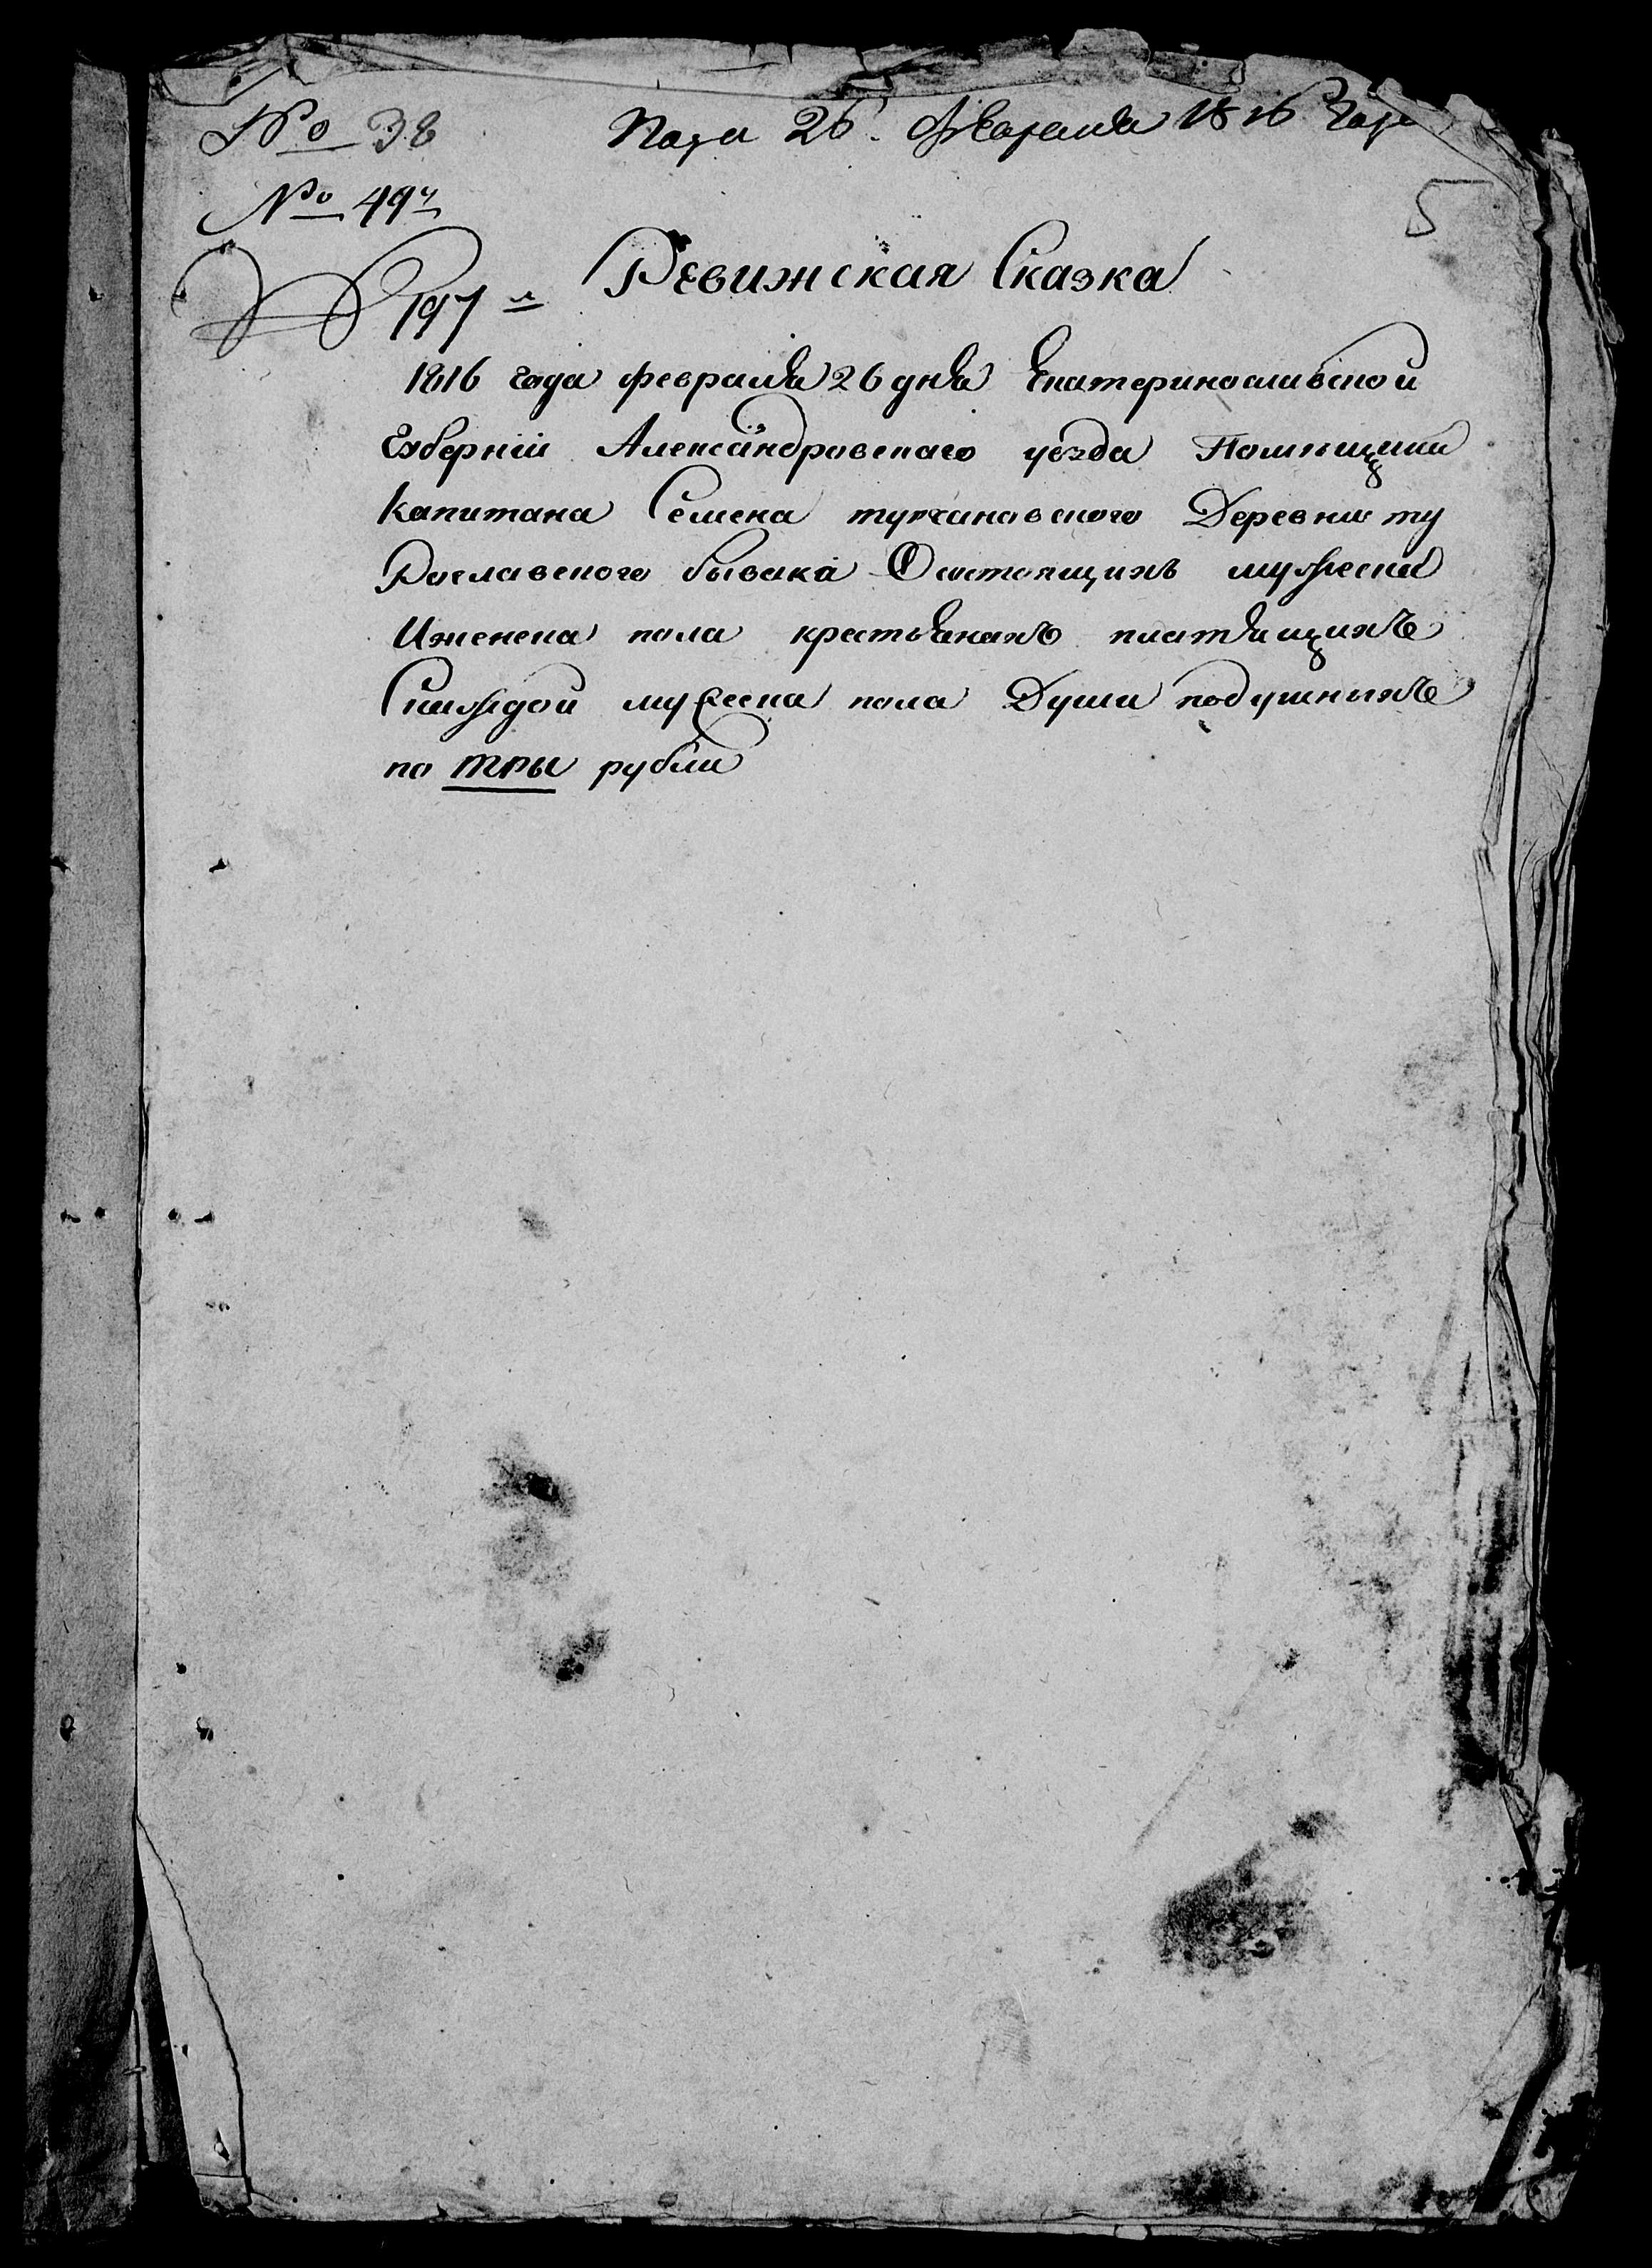 № 38
Пода 26. Февраля 1816 Года
№ 49ч
5
197 л
Ревижская Сказка
1816 года февраля 26 дня Екатеринославской
Губернии Александровскаго уезда Помещика
Капитана Семена турчановского Деревни ту
Рославского бувака О состоящихъ мужеска
Иженска пола крестьянахъ платящихъ
Скаждой мужеска пола Души подушныхъ
по тры рубли